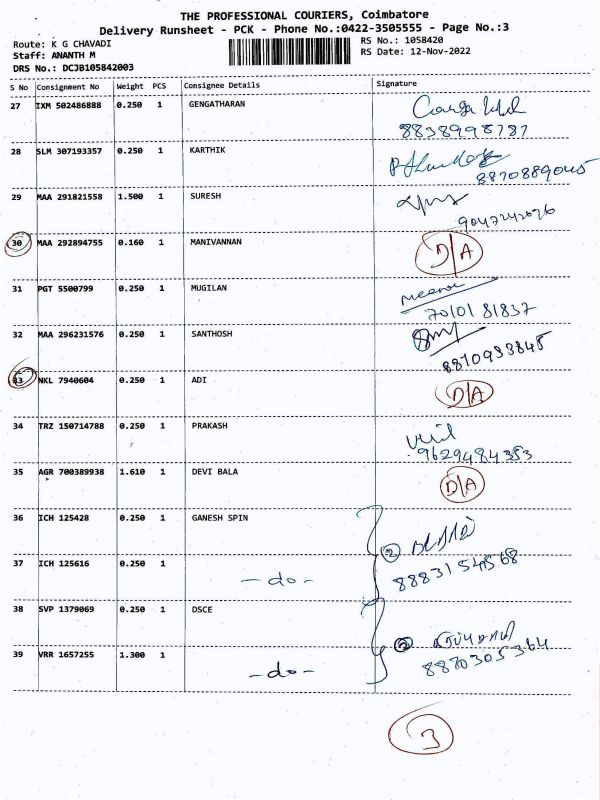 THE PROFESSIONAL COURIERS, Coimbatore
Delivery Runsheet - PCK - Phone No.:0422-3505555 - Page No.:3
Route: K G CHAVADI RS No.: 1058420
Staff: ANANTH M RS Date: 12-Nov-2022
DRS No.: DCJB105842003
S No Consignment No Weight PCS Consignee Details Signature
27 IXM 502486888 0.250 1 GENGATHARAN
8838998787
28 SLM 307193357 0.250 1 KARTHIK
8870889045
29 MAA 291821558 1.500 1 SURESH
9047242076
30 MAA 292894755 0.160 1 MANIVANNAN D/A
31 PGT 5500799 0.250 1 MUGILAN Meena
70101 81837
32 MAA 296231576 0.250 1 SANTHOSH
8870933845
33 NKL 7940604 0.250 1 ADI D/A
34 TRZ 150714788 0.250 1 PRAKASH
9629484353
35 AGR 700389938 1.610 1 DEVI BALA D/A
36 ICH 125428 0.250 1 GANESH SPIN
37 ICH 125616 0.250 1 - do - 2
88831 54568
38 SVP 1379069 0.250 1 DSCE
39 VRR 1657255 1.300 1 - do - 2
8870305364
3